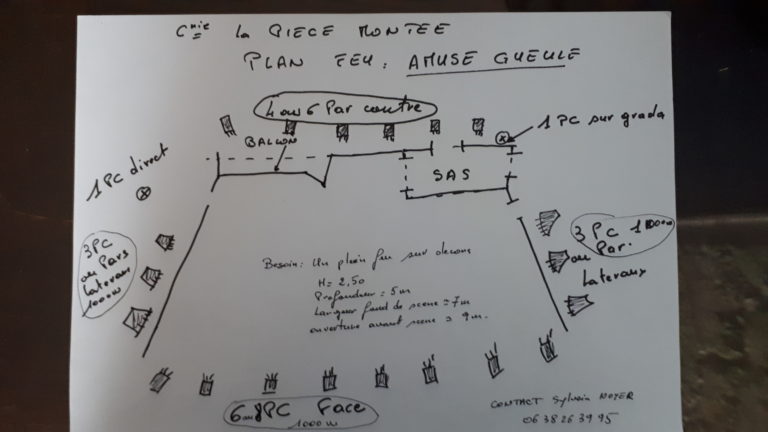 Cnie la PIECE MONTEE
PLAN FEU : AMUSE GUEULE
4 ou 6 Par contre
1 PC sur grada
BALCON
SAS
1 PC direct
3 PC
ou Pars
Lateraux
1000 w
3 PC 1000 w
ou Par.
Lateraux
Besoin : Un plein feu sur decors
H = 2,50
Profondeur = 5 m
Largueur fond de scene = 7 m
ouverture avant scene = 9 m.
6 ou 8 PC Face
1000 W
CONTACT Sylvain NOYER
06 38 26 39 95